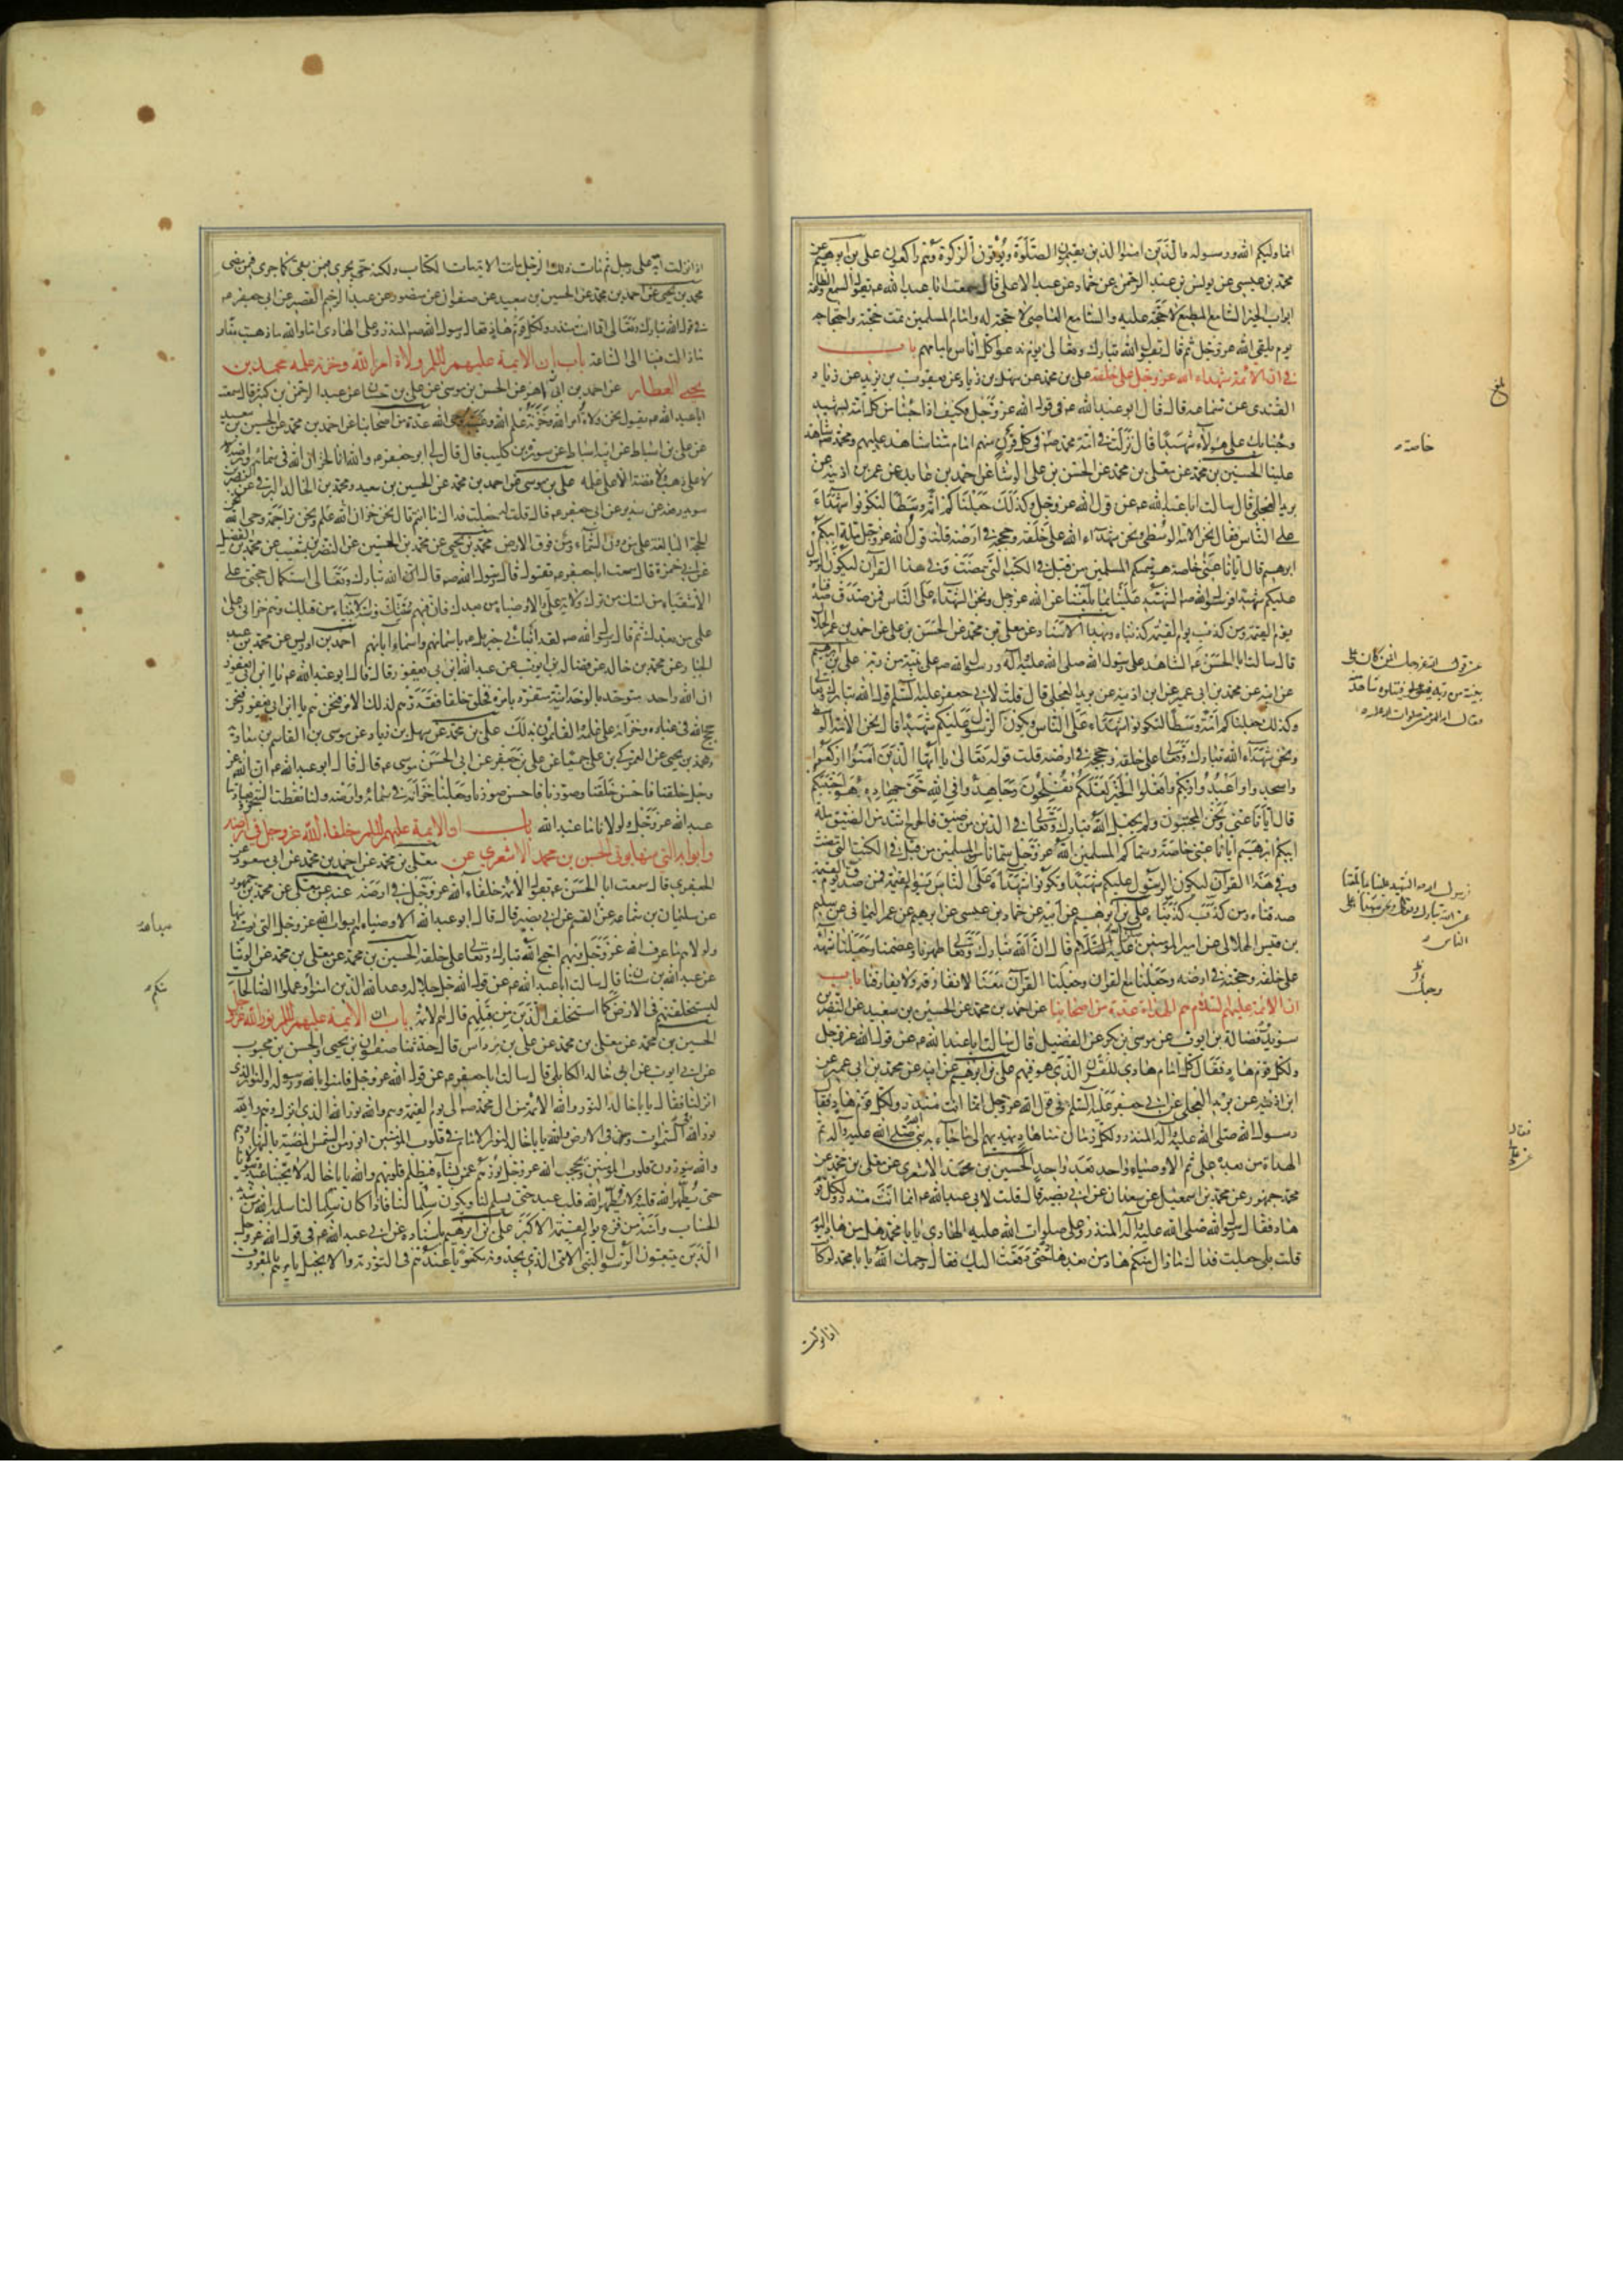 انما وليكم الله ورسوله والذين امنوا الذين يقيمون الصلوة ويؤتون الزكوة وهم راكعون على بن ابرهيم عن
محمد بن عيسى عن يونس بن عبد الرحمن عن حماد عن عبد الاعلى قال سمعت ابا عبد الله ع يقول السمع والطاعة
ابواب الخير السامع المطيع لا حجة عليه والسامع العاصى لا حجة له وامام المسلمين تمت حجته واحتجاجه
يوم يلقى الله عز وجل ثم قال يقول الله تبارك وتعالى يوم ندعوا كل اناس بامامهم باب
فى ان الائمة شهداء الله عز وجل على خلقه على بن محمد عن سهل بن زياد عن يعقوب بن يزيد عن زياد
القندى عن سماعه قال قال ابو عبد الله ع فى قول الله عز وجل فكيف اذا جئنا من كل امة بشهيد
وجئنا بك على هؤلاء شهيدا قال نزلت فى امة محمد ص فى كل قرن منهم امام منا شاهد عليهم ومحمد شاهد
علينا الحسين بن محمد عن معلى بن محمد عن الحسن بن على الوشا عن احمد بن عايد عن عمر بن اذينه عن
بريد العجلى قال سالت ابا عبد الله ع عن قول الله عز وجل وكذلك جعلناكم امة وسطا لتكونوا شهداء
على الناس فقال نحن الامة الوسطى ونحن شهداء الله على خلقه وحججه فى ارضه قلت قول الله عز وجل ملة ابيكم
ابرهيم قال ايانا عنى خاصة هو سمكم المسلمين من قبل فى الكتب التى مضت وفى هذا القرآن ليكون الرسول
عليكم شهيدا فرسول الله ص الشهيد علينا بما بلغنا عن الله عز وجل ونحن الشهداء على الناس فمن صدق صدقناه
يوم القيمة ومن كذب يوم القيمة كذبناه وبهذا الاسناد عن معلى بن محمد عن الحسن بن على عن احمد بن عمر الحلال
قال سالت ابا الحسن ع الشاهد على رسول الله صلى الله عليه وآله ورسول الله ص على بينة من ربه على بن ابرهيم
عن ابيه عن محمد بن ابى عمير عن ابن اذينه عن بريد العجلى قال قلت لابى جعفر عليه السلم قول الله تبارك وتعالى
وكذلك جعلناكم امة وسطا لتكونوا شهداء على الناس ويكون الرسول عليكم شهيدا قال نحن الامة الوسط
ونحن شهداء الله تبارك وتعالى على خلقه وحججه فى ارضه قلت قوله تعالى يا ايها الذين آمنوا اركعوا
واسجدوا واعبدوا ربكم وافعلوا الخير لعلكم تفلحون وجاهدوا فى الله حق جهاده هو اجتبيكم
قال ايانا عنى ونحن المجتبون ولم يجعل الله تبارك وتعالى فى الدين من ضيق فالحرج اشد من الضيق ملة
ابيكم ابرهيم ايانا عنى خاصة وسماكم المسلمين الله عز وجل سمانا المسلمين من قبل فى الكتب التى مضت
وفى هذا القرآن ليكون الرسول عليكم شهيدا وتكونوا شهداء على الناس يوم القيمة
صدقناه ومن كذب كذبناه على بن ابرهيم عن ابيه عن حماد بن عيسى عن ابرهيم بن عمر اليمانى عن سليم
بن قيس الهلالى عن امير المؤمنين عليه السلام قال ان الله تبارك وتعالى طهرنا وعصمنا وجعلنا شهداء
على خلقه وحجته فى ارضه وجعلنا مع القرآن وجعلنا القرآن معنا لا نفارقه ولا يفارقنا باب
ان الائمة عليهم السلام هم الهداة عدة من اصحابنا عن احمد بن محمد عن الحسين بن سعيد عن النضر بن
سويد وفضالة بن ايوب عن موسى بن بكر عن الفضيل قال سالت ابا عبد الله ع عن قول الله عز وجل
ولكل قوم هاد فقال كل امام هادى للقرن الذى هو فيهم على بن ابرهيم عن ابيه عن محمد بن ابى عمير عن
ابن اذينه عن بريد العجلى عن ابى جعفر عليه السلم فى قول الله عز وجل انما انت منذر ولكل قوم هاد فقال
رسول الله صلى الله عليه وآله المنذر ولكل زمان منا هاد يهديهم الى ما جاء به نبى الله صلى الله عليه وآله ثم
الهداة من بعده على ثم الاوصياء واحد بعد واحد الحسين بن محمد الاشعرى عن معلى بن محمد عن
محمد بن جمهور عن محمد بن اسمعيل عن سعدان عن ابى بصير قال قلت لابى عبد الله ع انما انت منذر ولكل قوم
هاد فقال رسول الله صلى الله عليه وآله المنذر وعلى صلوات الله عليه الهادى يا با محمد هل من هاد اليوم
قلت بلى جعلت فداك ما زال منكم هاد من بعد هاد حتى دفعت اليك فقال رحمك الله يا با محمد لو كانت
خاصة
الناس
وجل
فقال
اذا نزلت آية على رجل ثم مات ذلك الرجل ماتت الاية مات الكتاب ولكنه حى يجرى فيمن بقى كما جرى فيمن مضى
محمد بن يحيى عن احمد بن محمد عن الحسين بن سعيد عن صفوان عن منصور عن عبد الرحيم القصير عن ابى جعفر ع
فى قول الله تبارك وتعالى انما انت منذر ولكل قوم هاد فقال رسول الله ص المنذر وعلى الهادى اما والله ما ذهبت منا
وما زالت فينا الى الساعة باب ان الائمة عليهم السلم ولاة امر الله وخزنة علمه محمد بن
يحيى العطار عن احمد بن ابى زاهر عن الحسن بن موسى عن على بن حسان عن عبد الرحمن بن كثير قال سمعت
ابا عبد الله ع يقول نحن ولاة امر الله وخزنة علم الله وعيبة وحى الله عدة من اصحابنا عن احمد بن محمد عن الحسين بن سعيد
عن على بن اسباط عن ابيه اسباط عن سورة بن كليب قال قال لى ابو جعفر ع والله انا لخزان الله فى سمائه وارضه
لا على ذهب ولا فضة الا على علمه على بن موسى عن احمد بن محمد عن الحسين بن سعيد ومحمد بن خالد البرقى عن النضر بن
سويد رفعه عن سدير عن ابى جعفر ع قال قلت له جعلت فداك ما انتم قال نحن خزان الله علم ونحن تراجمة وحى الله
الحجة البالغة على من دون السماء ومن فوق الارض محمد بن يحيى عن محمد بن الحسين عن النضر بن شعيب عن محمد بن الفضيل
عن ابى حمزة قال سمعت ابا جعفر ع يقول قال رسول الله ص قال الله تبارك وتعالى استكمال حجتى على
الاشقياء من امتك من ترك ولاية على والاوصياء من بعدك فان فيهم سنتك وسنة الانبياء من قبلك وهم خزانى على
علمى من بعدك ثم قال رسول الله ص لقد انبأنى جبرئيل ع باسمائهم واسماء ابائهم احمد بن ادريس عن محمد بن عبد
الجبار عن محمد بن خالد عن فضالة بن ايوب عن عبد الله بن ابى يعفور قال قال ابو عبد الله ع يا ابن ابى يعفور
ان الله واحد متوحد بالوحدانية متفرد بامره فخلق خلقا فقدرهم لذلك الامر فنحن هم يا ابن ابى يعفور فنحن
حجج الله فى عباده وخزانه على علمه والقائمون بذلك على بن محمد عن سهل بن زياد عن موسى بن القاسم بن معاوية
ومحمد بن يحيى عن العمركى بن على جميعا عن على بن جعفر عن ابى الحسن موسى ع قال قال ابو عبد الله ع ان الله عز
وجل خلقنا فاحسن خلقنا وصورنا فاحسن صورنا وجعلنا خزانه فى سمائه وارضه ولنا نطقت الشجرة وبعبادتنا
عبد الله عز وجل ولولانا ما عبد الله باب ان الائمة عليهم السلم خلفاء الله عز وجل فى ارضه
وابوابه التى منها يؤتى الحسين بن محمد الاشعرى عن معلى بن محمد عن احمد بن محمد عن ابى مسعود عن
الجعفرى قال سمعت ابا الحسن ع يقول الائمة خلفاء الله عز وجل فى ارضه عنه عن معلى عن محمد بن جمهور
عن سليمان بن سماعه عن القسم عن ابى بصير قال قال ابو عبد الله الاوصياء هم ابواب الله عز وجل التى يوتى منها
ولولاهم ما عرف الله عز وجل وبهم احتج الله تبارك وتعالى على خلقه الحسين بن محمد عن معلى بن محمد عن الوشا
عن عبد الله بن سنان قال سالت ابا عبد الله ع عن قول الله جل جلاله وعد الله الذين امنوا وعملوا الصالحات
ليستخلفنهم فى الارض كما استخلف الذين من قبلهم قال هم الائمة باب ان الائمة عليهم السلم نور الله عز وجل
الحسين بن محمد عن معلى بن محمد عن على بن مرداس قال حدثنا صفوان بن يحيى والحسن بن محبوب
عن ابى ايوب عن ابى خالد الكابلى قال سالت ابا جعفر ع عن قول الله عز وجل فامنوا بالله ورسوله والنور الذى
انزلنا فقال يا با خالد النور والله الائمة من ال محمد ص الى يوم القيمة وهم والله نور الله الذى انزل وهم والله
نور الله فى السموات وفى الارض والله يا با خالد لنور الامام فى قلوب المؤمنين انور من الشمس المضيئة بالنهار وهم
والله ينورون قلوب المؤمنين ويحجب الله عز وجل نورهم عمن يشاء فتظلم قلوبهم والله يا با خالد لا يحبنا عبد ويتولانا
حتى يطهر الله قلبه ولا يطهر الله قلب عبد حتى يسلم لنا ويكون سلما لنا فاذا كان سلما لنا سلمه الله من شديد
الحساب وآمنه من فزع يوم القيمة الاكبر على بن ابرهيم باسناده عن ابى عبد الله ع فى قول الله عز وجل
الذين يتبعون الرسول النبى الامى الذى يجدونه مكتوبا عندهم فى التورية والانجيل يامرهم بالمعروف